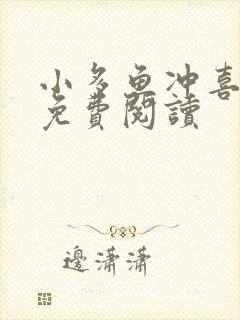 小多鱼冲喜
免費閱讀
邊瀟瀟